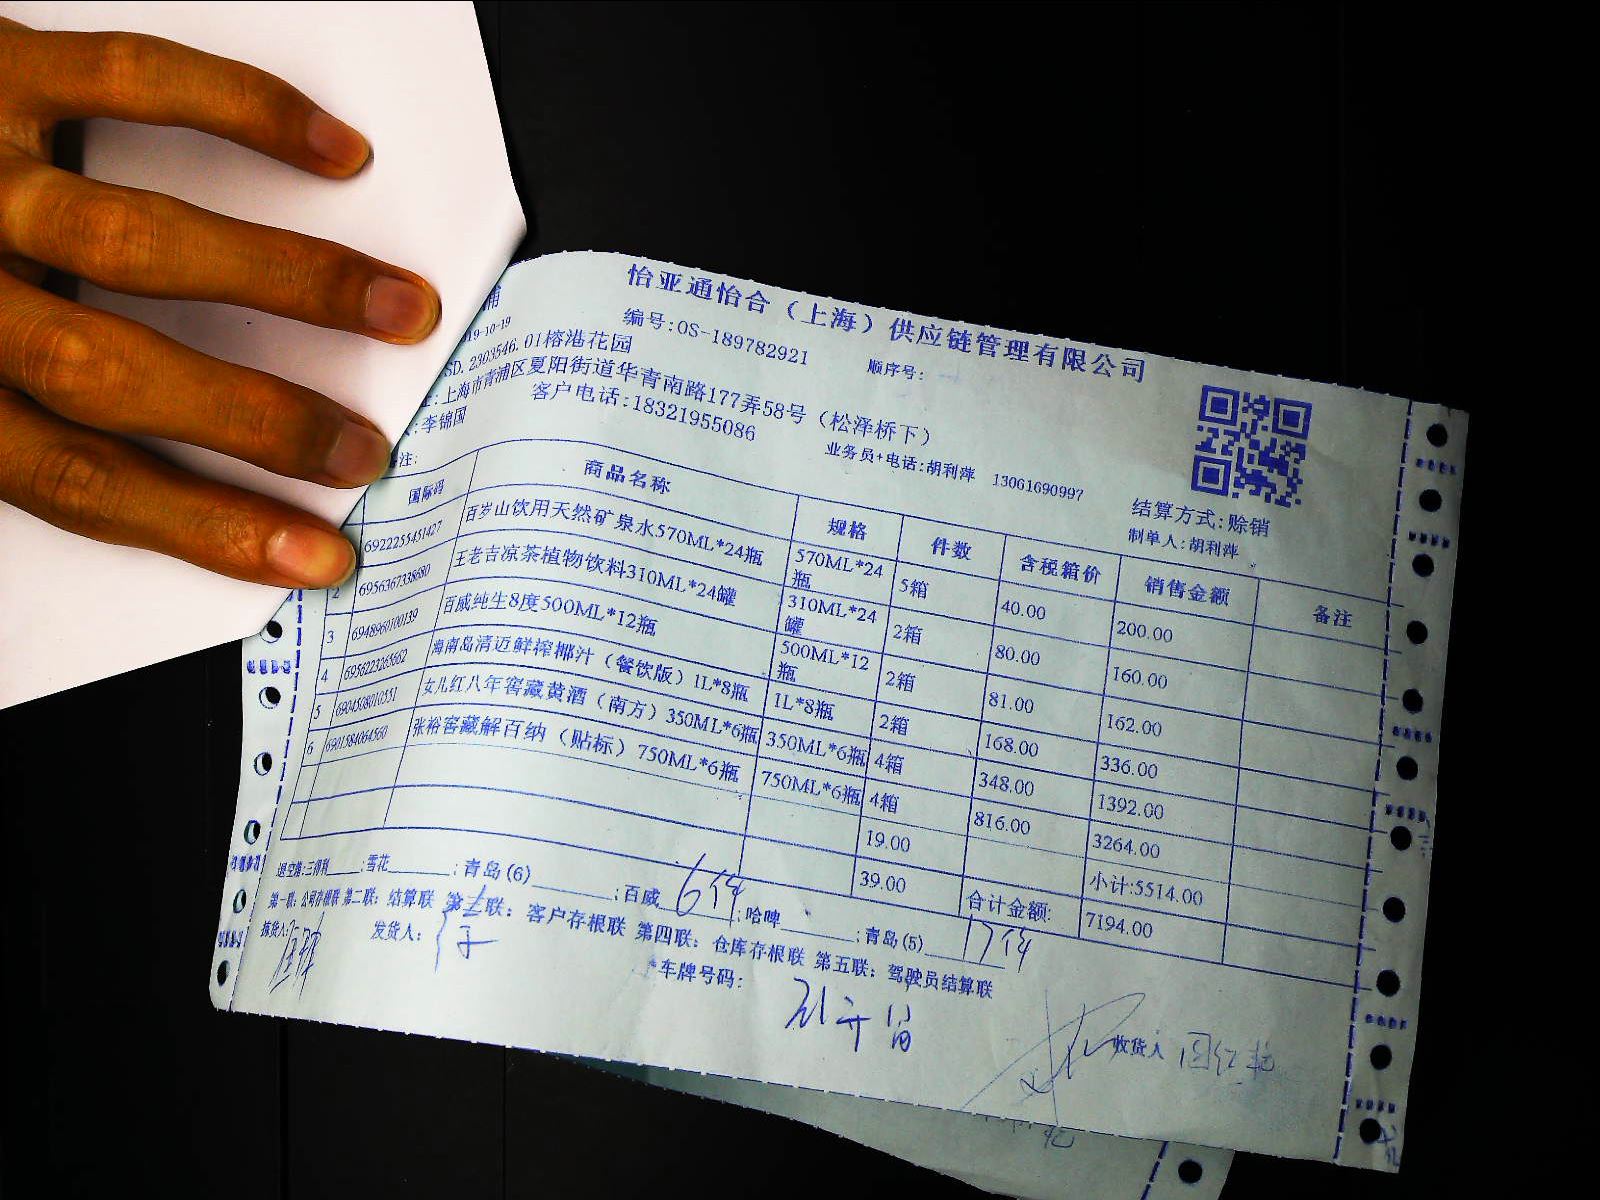 怡亚通怡合（上海）供应链管理有限公司
浦
19-10-19 编号:OS-189782921 顺序号:
SD.2303546.01榕港花园
:上海市青浦区夏阳街道华青南路177弄58号（松泽桥下）
:李锦国 客户电话:18321955086 业务员+电话:胡利萍 13061690997 结算方式:赊销
注: 制单人:胡利萍
国际码 商品名称 规格 件数 含税箱价 销售金额 备注
6922255451427 百岁山饮用天然矿泉水570ML*24瓶 570ML*24瓶 5箱 40.00 200.00
2 6956367338680 王老吉凉茶植物饮料310ML*24罐 310ML*24罐 2箱 80.00 160.00
3 6948960100139 百威纯生8度500ML*12瓶 500ML*12瓶 2箱 81.00 162.00
4 6956223263662 海南岛清迈鲜榨椰汁（餐饮版）1L*8瓶 1L*8瓶 2箱 168.00 336.00
5 6904508010551 女儿红八年窖藏黄酒（南方）350ML*6瓶 350ML*6瓶 4箱 348.00 1392.00
6 6901584064560 张裕窖藏解百纳（贴标）750ML*6瓶 750ML*6瓶 4箱 816.00 3264.00
19.00 小计:5514.00
39.00 合计金额: 7194.00
退空箱:三得利____;雪花________;青岛(6)________;百威 6件 ;哈啤________;青岛(5) 17件
第一联:公司存根联 第二联: 结算联 第三联: 客户存根联 第四联: 仓库存根联 第五联: 驾驶员结算联
拣货人: 发货人: 车牌号码:
收货人